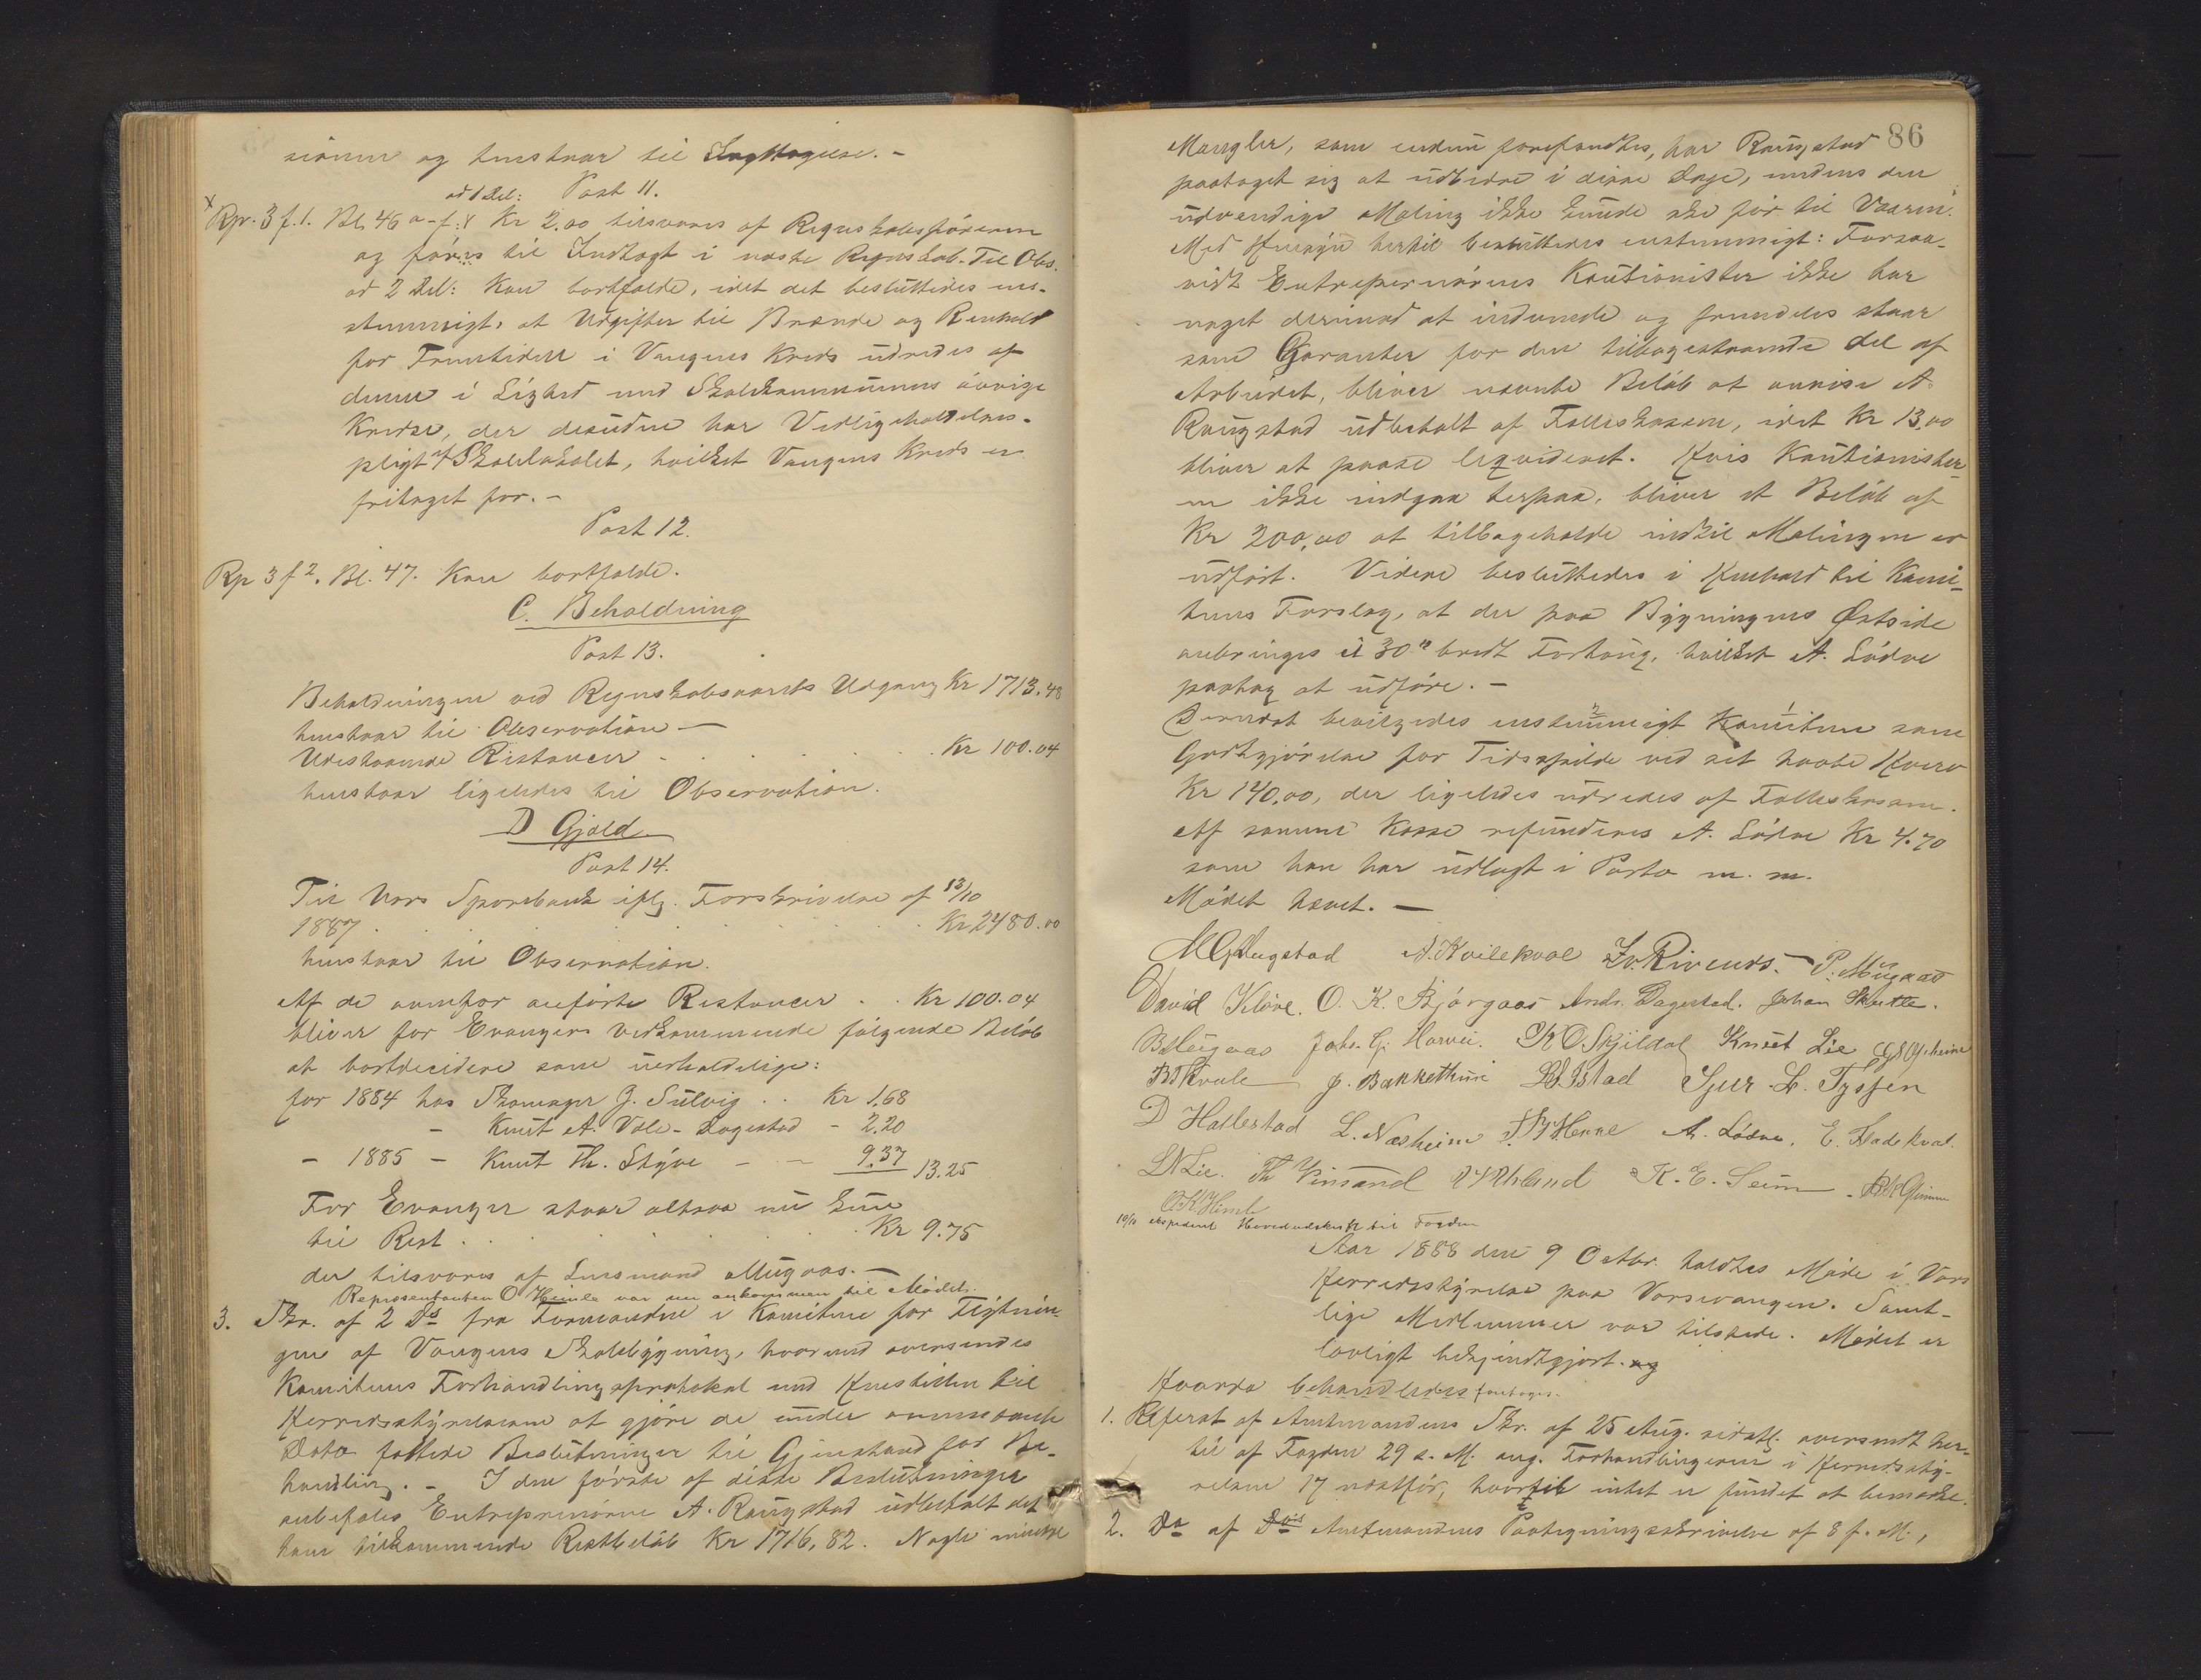 sionen og henstaar til Iagttagelse. -
ad 1 Del: Post 11.
Rpr. 3 f. 1. Bl. 46 a-f. Kr 2.00 tilsvares af Regnskabsføreren
og føres til Indtægt i næste Regnskab. Til Obs.
ad 2 Del: Kan bortfalde, idet det besluttedes en-
stemmigt, at Udgifter til Brænde og Renhold
for Fremtiden i Vangens Kreds udredes af
denne i Lighed med Skolekommunens øvrige
Kredse, der desuden har Vedligeholdelses-
pligt af Skolelokalet, hvilket Vangens Kreds er
fritaget for. -
Post 12.
Rp 3 f 2. Bl. 47. Kan bortfalde.
C. Beholdning
Post 13.
Beholdningen ved Regnskabsaarets Udgang Kr 1713.48
henstaar til Observation —
Udestaaende Restancer . . . . . Kr 100.04
henstaar ligeledes til Observation.
D Gjæld
Post 14.
Til Vors Sparebank iflg. Forskrivelse af 13/10
1887 . . . . . . . . Kr 2480.00
henstaar til Observation.
Af de ovenfor anførte Restancer . . Kr 100.04
bliver for Evangers Vedkommende følgende Beløb
at bortdecidere som uerholdelige:
for 1884 hos Skomager J. Sulvig . . Kr 1.68
- Knut A. Vale-Dagestad - 2.20
- 1885 - Knut Th. Skyve - - 9.37 13.25
For Evanger staar altsaa nu kun
til Rest . . . . . . . Kr 9.75
der tilsvares af Lensmand Mugaas. —
Repræsentanten O Himle var nu ankommen til Mødet.
3. Skr. af 2 Ds fra Formanden i Komiteen for Flytnin-
gen af Vangens Skolebygning, hvormed oversendes
Komiteens Forhandlingsprotokol med Henstillen til
Herredsstyrelsen at gjøre de under ovennævnte
Dato fattede Beslutninger til Gjenstand for Be-
handling. - I den første af disse Beslutninger
anbefales Entreprenøren A. Raugstad udbetalt det
ham tilkommende Restbeløb Kr 1716,82. Nogle mindre
86
Mangler, som endnu forefandtes, har Raugstad
paataget sig at udbedre i disse Dage, medens den
udvendige Maling ikke kunde ske før til Vaaren.
Med Hensyn hertil besluttedes enstemmigt: Forsaa-
vidt Entreprenørens Kautionister ikke har
noget derimod at indvende og fremdeles staar
som Garanter for den tilbagestaaende Del af
Arbeidet, bliver nævnte Beløb at anvise A.
Raugstad udbetalt af Fælleskassen, idet Kr 13,00
bliver at paase liqvideret. Hvis Kautionister-
ne ikke indgaa herpaa, bliver et Beløb af
Kr 200,00 at tilbageholde indtil Malingen er
udført. Videre besluttedes i Henhold til Komi-
teens Forslag, at der paa Bygningens Østside
anbringes et 30" bredt Fortoug, hvilket A. Lødve
paatog at udføre. -
Dernæst bevilgedes enstemmigt Komiteen som
Godtgjørelse for Tidsspilde ved sit havte Hverv
Kr 140,00, der ligeledes udredes af Fælleskassen.
Af samme Kasse refunderes A. Lødve Kr 4.70
som han har udlagt i Porto m. m.
Mødet hævet. —
A. Kvilekval Iv. Rivenes. P. Mugaas
David Kløve. O. K. Bjørgaas Ands. Dagestad. Johan Skutle.
Johs. G. Horvei. K O. Skjeldal Knut Lie
B T Kvale J. Bakkethun Sjur L. Tyssen
D Hallestad L. Næsheim A. Lødve. E. Fladekval.
L N Lie. Th Vinsand K. E. Seim
O K Himle
10/10 expederet Hovedudskrift til Fogden
Aar 1888 den 9 Octbr. holdtes Møde i Vors
Herredsstyrelse paa Vossevangen. Samt-
lige Medlemmer var tilstede. Mødet er
lovligt bekjendtgjort. og
Hvorda behandledes foretoges.
1. Referat af Amtmandens Skr. af 25 Aug. sidstl. oversendt her-
til af Fogden 29 s. M. ang. Forhandlingerne i Herredssty-
relsen 17 næstfør, hvortil intet er fundet at bemærke.
2. Do af Do Amtmandens Paategningsskrivelse af 8 f. M.,